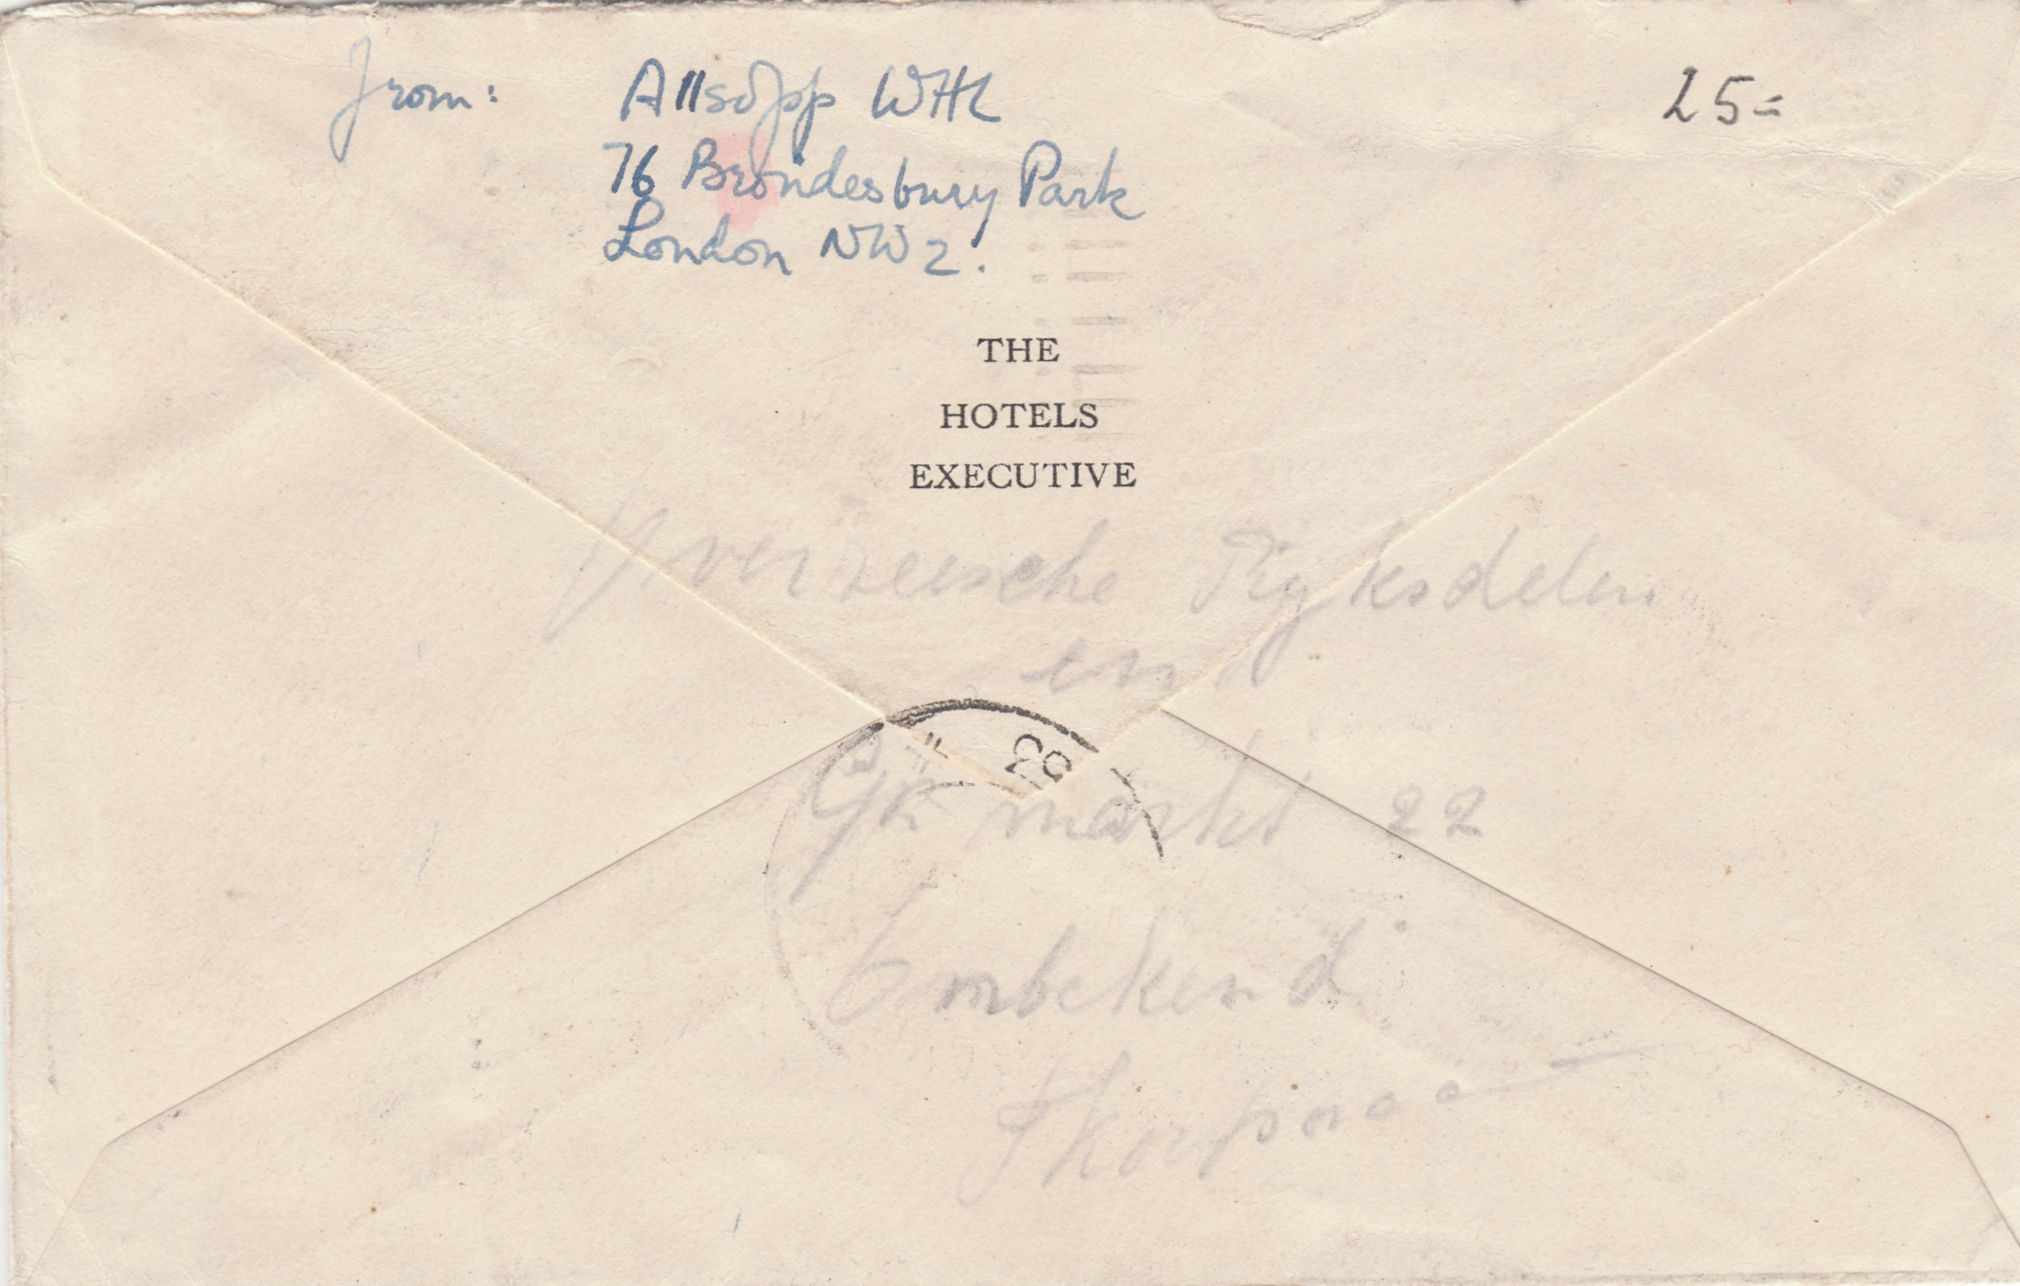 From: Allsopp WHL 25=
76 Brondesbury Park
London NW2.
THE
HOTELS
EXECUTIVE
Overzeesche Rijksdelen
en
markt 22
Onbekend
53